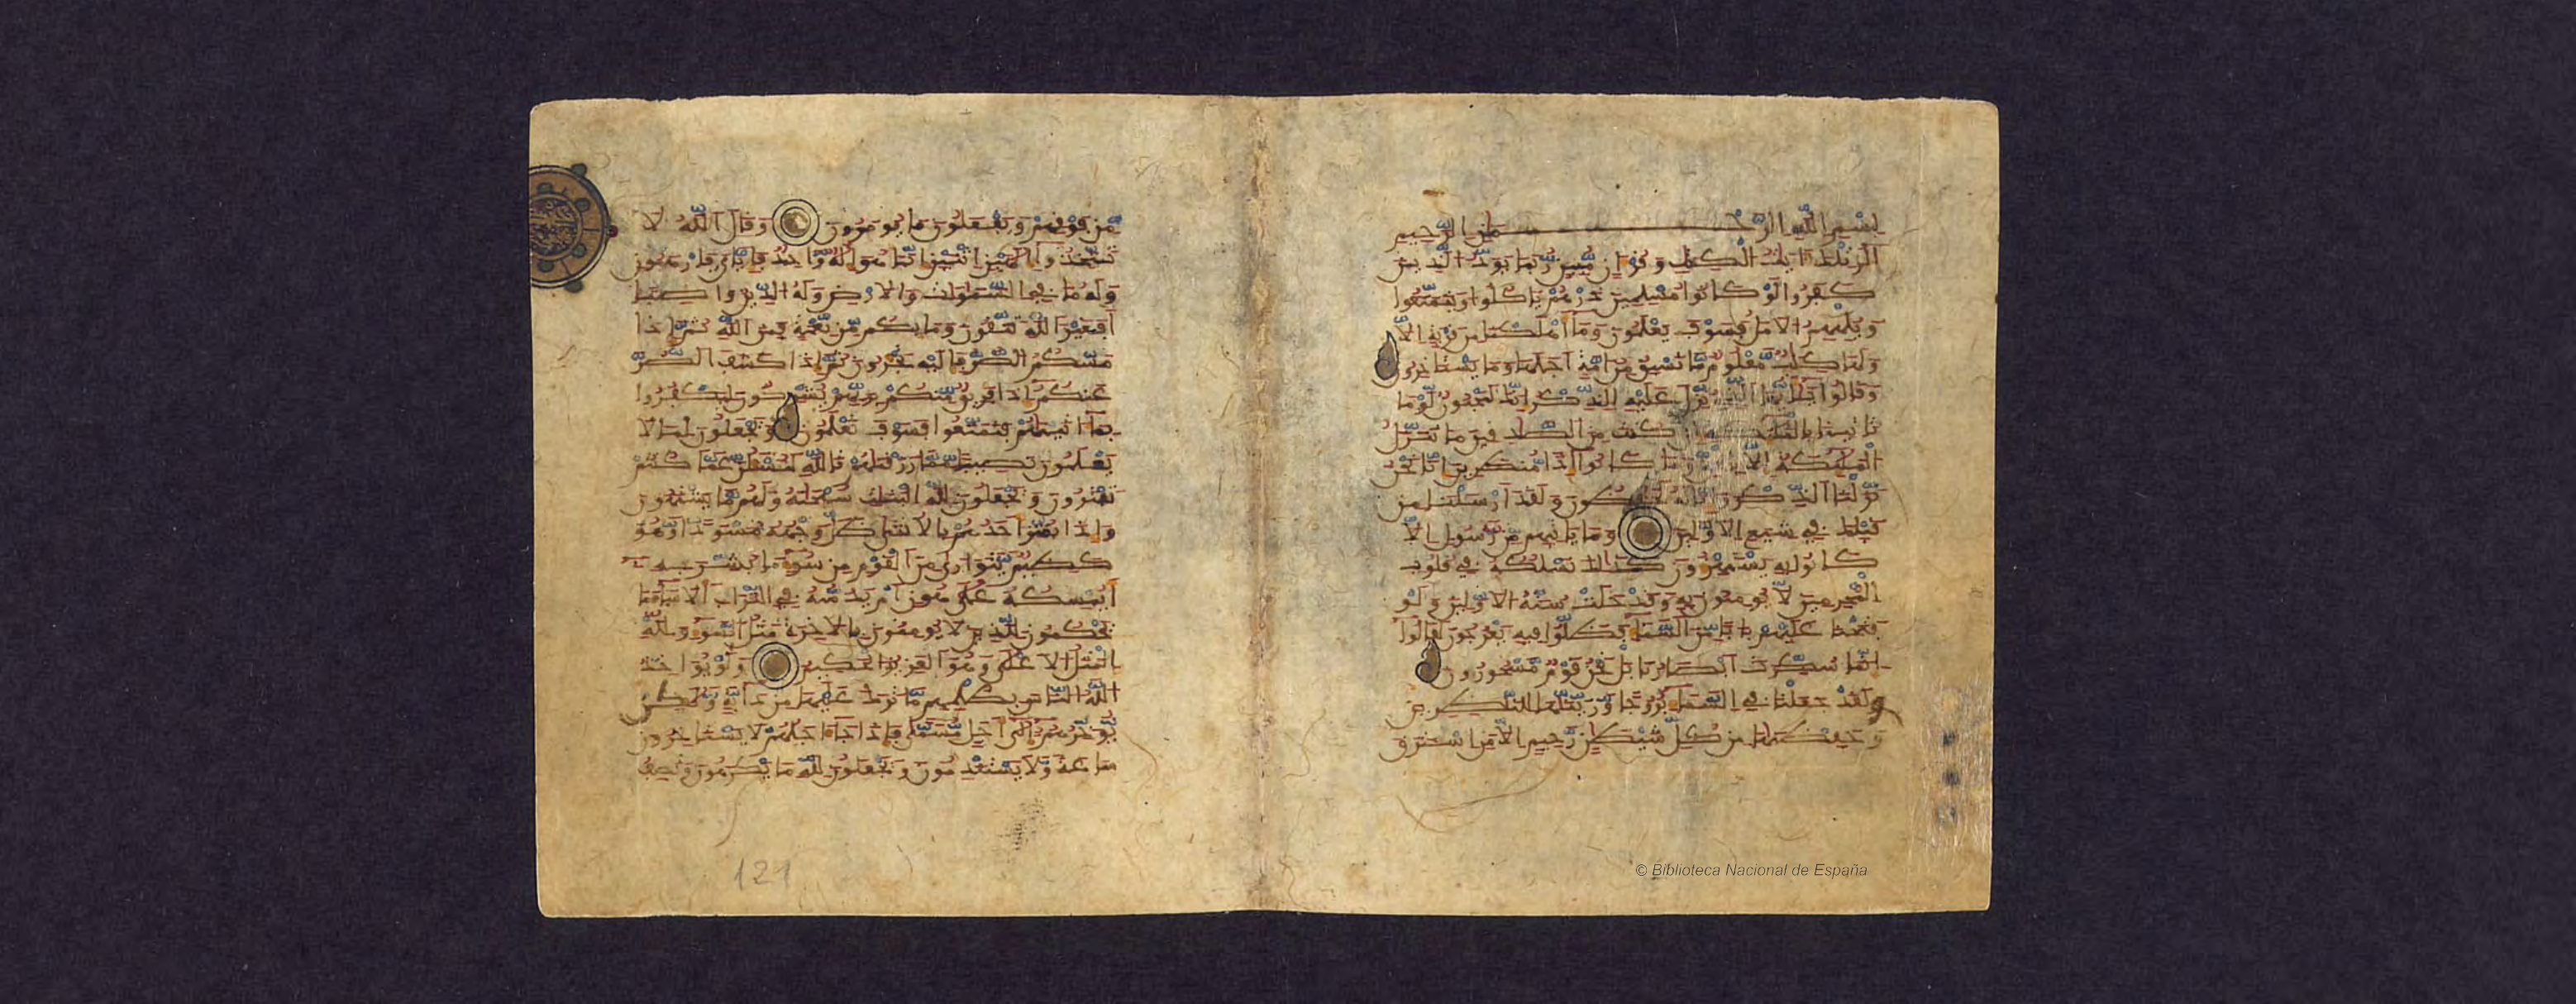 بسم الله الرحمن الرحيم
الر تلك ءايت الكتب وقرءان مبين ربما يود الذين
كفروا لو كانوا مسلمين ذرهم ياكلوا ويتمتعوا
ويلههم الامل فسوف يعلمون وما أهلكنا من قرية الا
ولها كتاب معلوم ما تسبق من امة اجلها وما يستخرون
وقالوا يأيها الذي نزل عليه الذكر انك لمجنون لو ما
تاتينا بالملئكة ان كنت من الصدقين ما تنزل
الملئكة الا بالحق وما كانوا إذا منظرين انا نحن
نزلنا الذكر وانا له لحفظون ولقد ارسلنا من
قبلك في شيع الاولين وما ياتيهم من رسول الا
كانوا به يستهزءون كذلك نسلكه في قلوب
المجرمين لا يومنون به وقد خلت سنة الاولين ولو
فتحنا عليهم بابا من السماء فظلوا فيه يعرجون لقالوا
انما سكرت ابصرنا بل نحن قوم مسحورون
ولقد جعلنا في السماء بروجا وزينها للنظرين
وحفظنها من كل شيطن رجيم الا من استرق
من فوقهم ويفعلون ما يومرون وقال الله لا
تتخذوا إلهين اثنين انما هو إله واحد فايي فارهبون
وله ما في السموات والارض وله الدين واصبا
أفغير الله تتقون وما بكم من نعمة فمن الله ثم إذا
مسكم الضر فإليه تجرون ثم إذا كشف الضر
عنكم إذا فريق منكم بربهم يشركون ليكفروا
بما ءاتينهم فتمتعوا فسوف تعلمون ويجعلون لما لا
يعلمون نصيبا مما رزقنهم تالله لتسئلن عما كنتم
تفترون ويجعلون لله البنت سبحنه ولهم ما يشتهون
وإذا بشر أحدهم بالانثى ظل وجهه مسودا وهو
كظيم يتورى من القوم من سوء ما بشر به
أيمسكه على هون أم يدسه في التراب ألا ساء ما
يحكمون للذين لا يومنون بالاخرة مثل السوء ولله
المثل الاعلى وهو العزيز الحكيم ولو يواخذ
الله الناس بظلمهم ما ترك عليها من دابة ولكن
يوخرهم إلى أجل مسمى فإذا جاء اجلهم لا يستخرون
ساعة ولا يستقدمون ويجعلون لله ما يكرهون وتصف
121
© Biblioteca Nacional de España